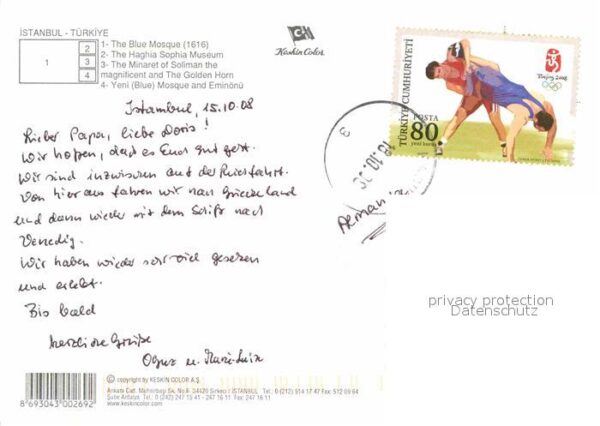 İSTANBUL - TÜRKİYE
1- The Blue Mosque (1616)
2- The Haghia Sophia Museum
3- The Minaret of Soliman the
magnificent and The Golden Horn
4- Yeni (Blue) Mosque and Eminönü
1
2
3
4
Keskin Color
Istanbul, 15.10.08
Lieber Papa, liebe Doris!
Wir hoffen, dass es Euch gut geht.
Wir sind inzwischen auf der Rückfahrt.
Von hier aus fahren wir nach Griechenland
und dann wieder mit dem Schiff nach
Venedig.
Wir haben wieder sehr viel gesehen
und erlebt.
Bis bald
herzliche Grüße
u.
TÜRKİYE CUMHURİYETİ
POSTA
80
yeni kuruş
Beijing 2008
3
privacy protection
Datenschutz
© copyright by KESKİN COLOR A.Ş.
Ankara Cad. No. 34420 Sirkeci / İSTANBUL Tel.: 0-(212) 514 17 47 Fax: 512 09 64
Şube Antalya: Tel.: 0 (242) 247 15 41 - 247 16 11 Fax: 247 16 11
www.keskincolor.com
8 693043 002692